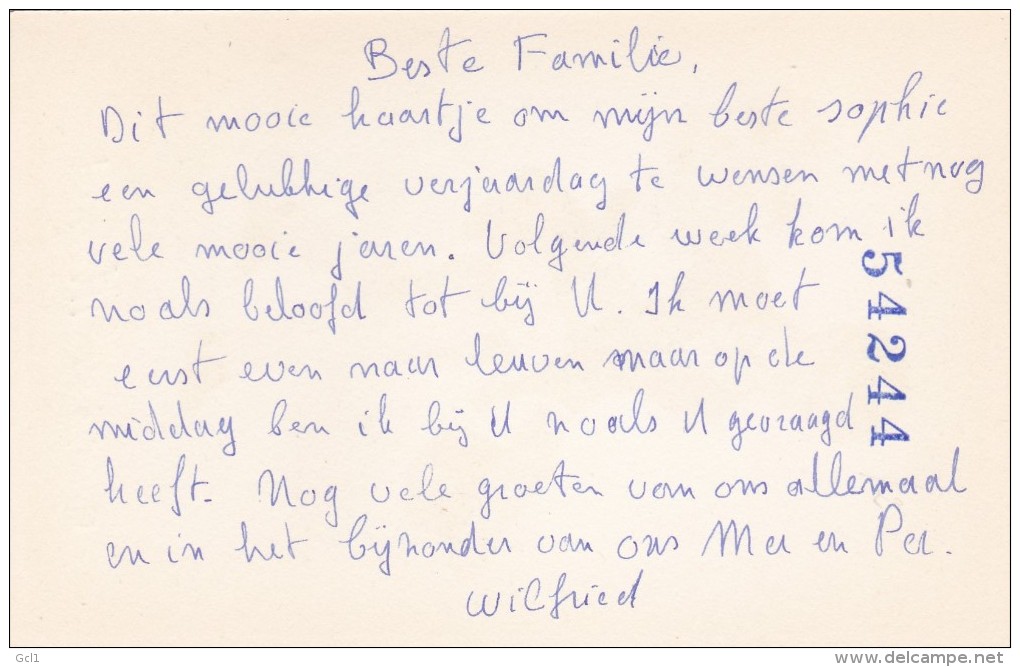 Beste Familie,
Dit mooie kaartje om mijn beste sophie
een gelukkige verjaardag te wensen met nog
vele mooie jaren. Volgende week kom ik
zoals beloofd tot bij U. Ik moet
eerst even naar leuven maar op de
middag ben ik bij U zoals U gevraagd
heeft. Nog vele groeten van ons allemaal
en in het bijzonder van ons Ma en Pa.
Wilfried
54244
Gcl1
© delcampe.net